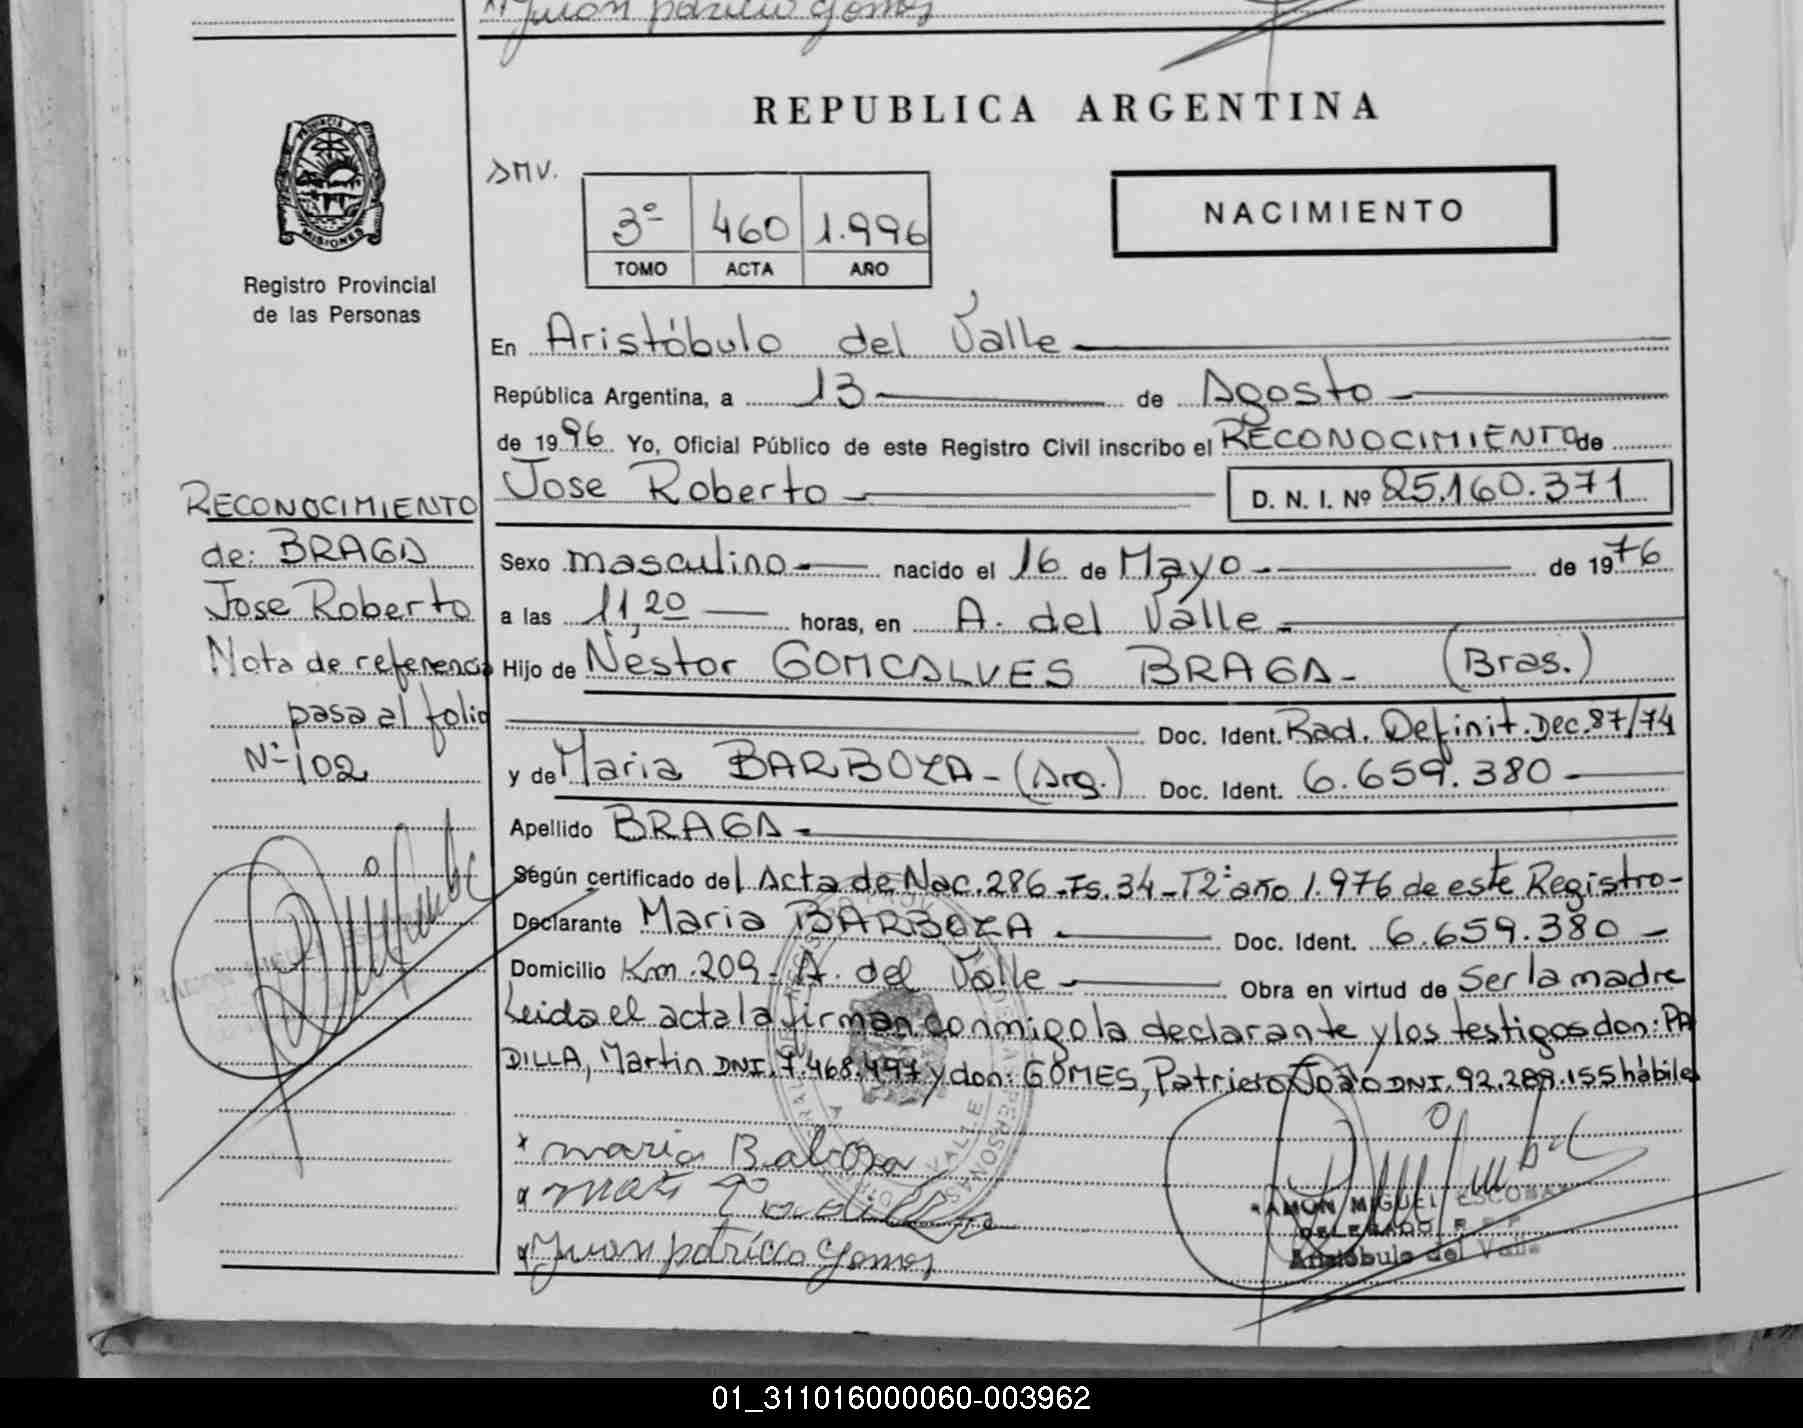 Juan patricio gomes
REPUBLICA ARGENTINA
PROVINCIA DE
MISIONES
Registro Provincial
de las Personas
SMV.
3º 460 1.996
TOMO ACTA AÑO
NACIMIENTO
En Aristóbulo del Valle
República Argentina, a 13 de Agosto
de 1996 Yo, Oficial Público de este Registro Civil inscribo el RECONOCIMIENTO de
Jose Roberto D. N. I. Nº 25.160.371
Sexo masculino nacido el 16 de Mayo de 1976
a las 11,20 horas, en A. del Valle
Hijo de Nestor GOMCALVES BRAGA- (Bras.)
Doc. Ident. Rad. Definit. Dec. 87/74
y de Maria BARBOZA-(Arg.) Doc. Ident. 6.659.380
Apellido BRAGA
Según certificado del Acta de Nac. 286-Fs. 34-T2º año 1.976 de este Registro-
Declarante Maria BARBOZA Doc. Ident. 6.659.380
Domicilio Km. 209- A. del Valle Obra en virtud de Ser la madre
Leida el acta la firman conmigo la declarante y los testigos don: PA
DILLA, Martin DNI. 7.468.497 y don: GOMES, Patricio João DNI. 92.289.155 hábiles
x maria Balboza
x
x Juan patricio gomes
RAMON MIGUEL ESCOBAR
DELEGADO R.P.P
Aristóbulo del Valle
RECONOCIMIENTO
de: BRAGA
Jose Roberto
Nota de referencia
pasa al folio
Nº 102
01_311016000060-003962